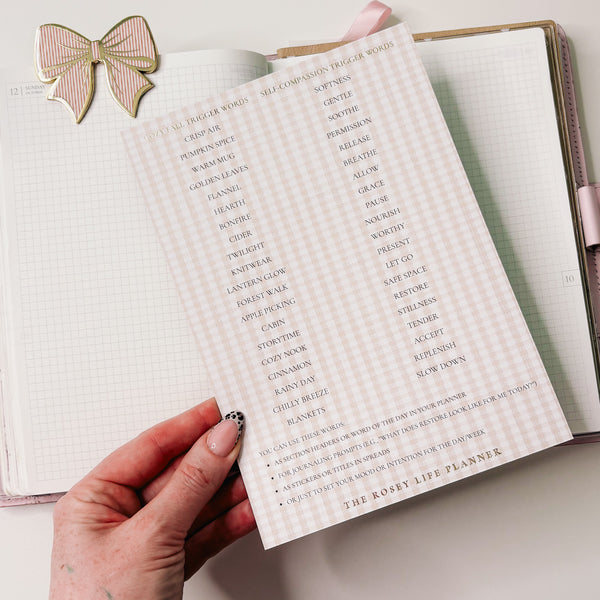 12
SUNDAY
OCTOBER
COZY FALL TRIGGER WORDS
CRISP AIR
PUMPKIN SPICE
WARM MUG
GOLDEN LEAVES
FLANNEL
HEARTH
BONFIRE
CIDER
TWILIGHT
KNITWEAR
LANTERN GLOW
FOREST WALK
APPLE PICKING
CABIN
STORYTIME
COZY NOOK
CINNAMON
RAINY DAY
CHILLY BREEZE
BLANKETS
SELF-COMPASSION TRIGGER WORDS
SOFTNESS
GENTLE
SOOTHE
PERMISSION
RELEASE
BREATHE
ALLOW
GRACE
PAUSE
NOURISH
WORTHY
PRESENT
LET GO
SAFE SPACE
RESTORE
STILLNESS
TENDER
ACCEPT
REPLENISH
SLOW DOWN
YOU CAN USE THESE WORDS:
• AS SECTION HEADERS OR WORD OF THE DAY IN YOUR PLANNER
• FOR JOURNALING PROMPTS (E.G., "WHAT DOES RESTORE LOOK LIKE FOR ME TODAY?")
• AS STICKERS OR TITLES IN SPREADS
• OR JUST TO SET YOUR MOOD OR INTENTION FOR THE DAY/WEEK
THE ROSEY LIFE PLANNER
10